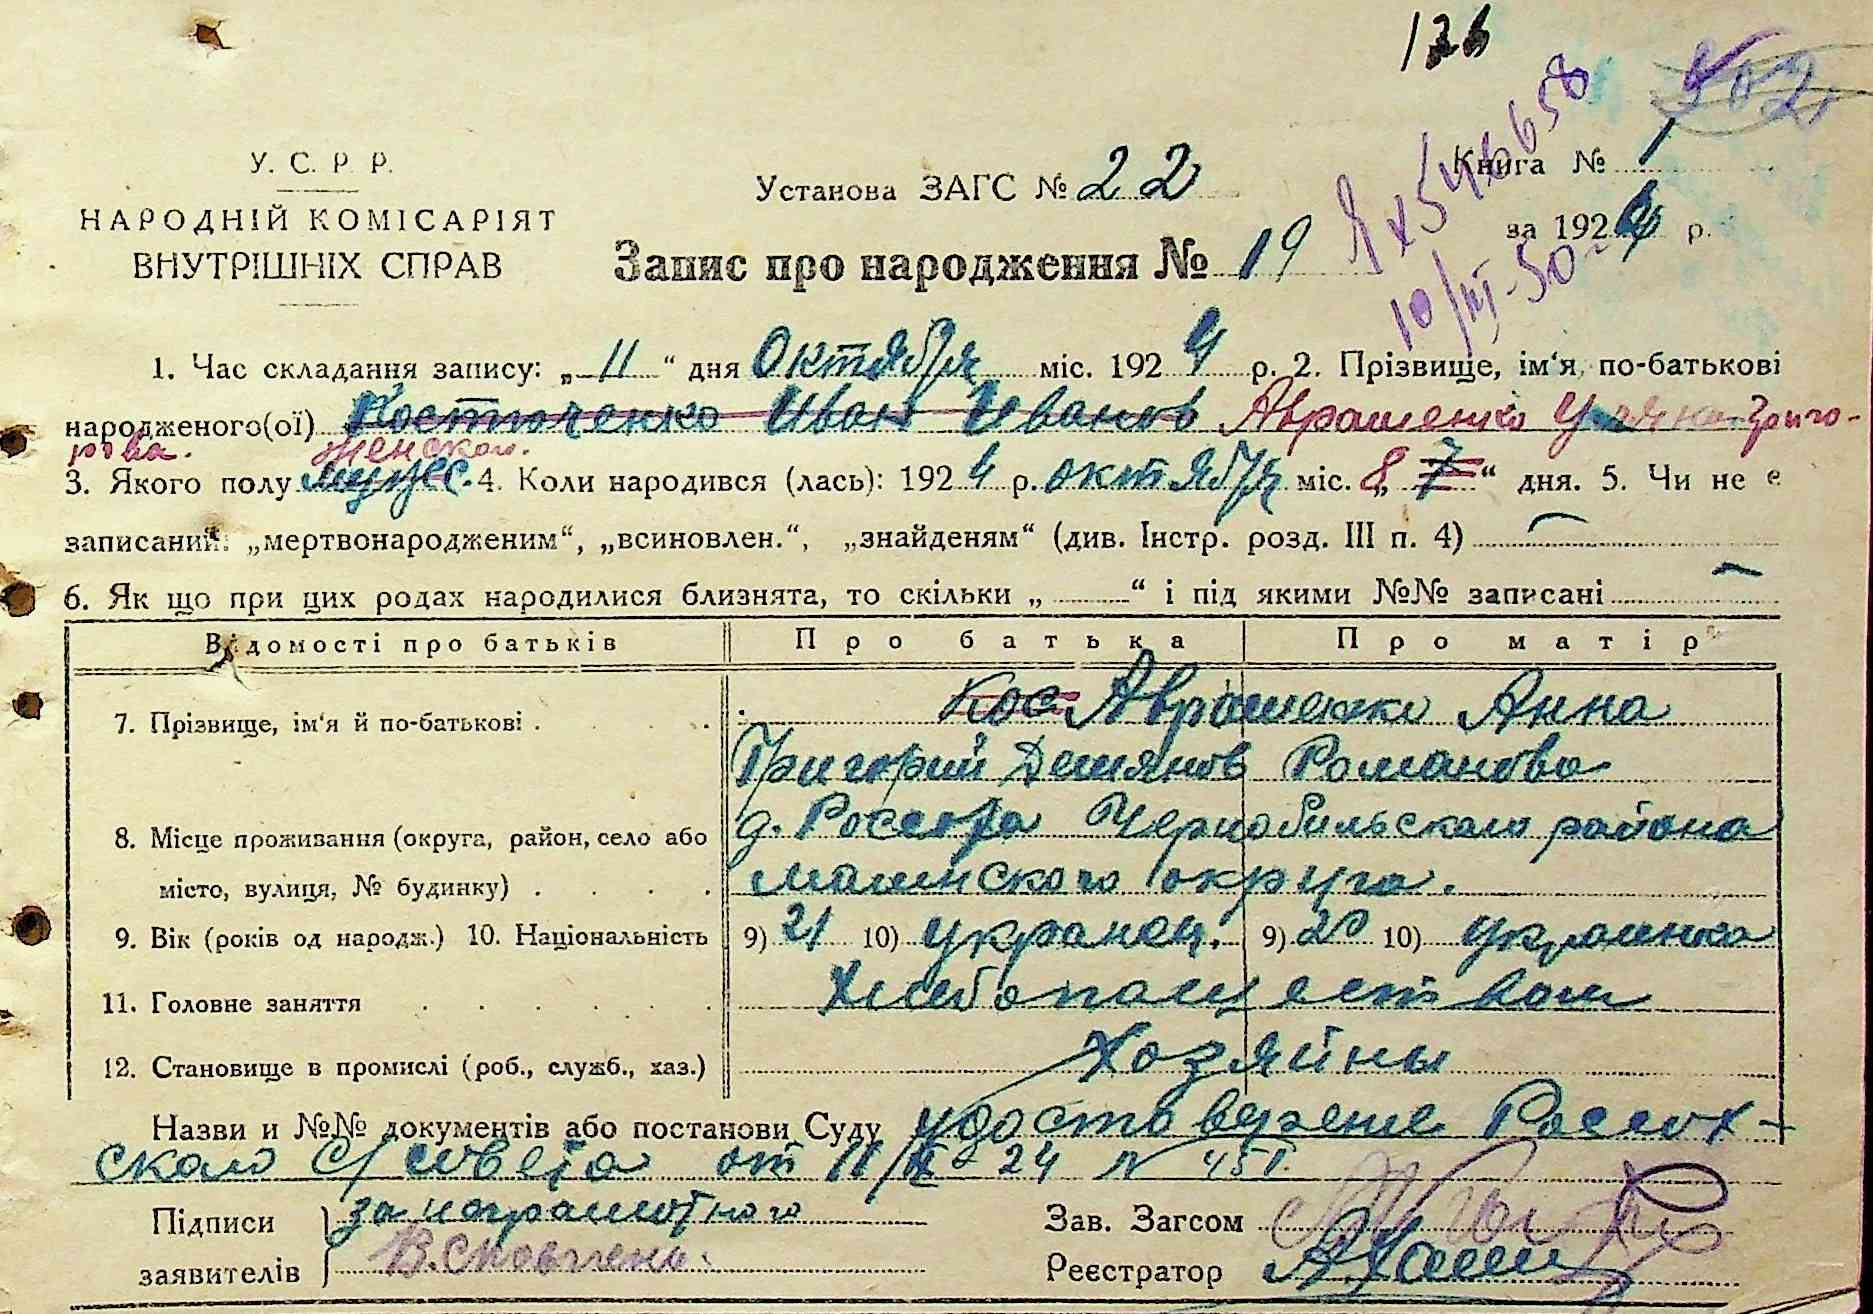 126
502
У. С. Р. Р.
НАРОДНІЙ КОМІСАРІЯТ
ВНУТРІШНІХ СПРАВ
Установа ЗАГС № 22
Книга № 1
за 1924 р.
Запис про народження № 19
10/III-50
1. Час складання запису: „11“ дня Октября міс. 1924 р. 2. Прізвище, ім‘я, по-батькові
народженого(ої) Костюченко Иван Иванов Аврашенко Григо-
рова. Женского.
3. Якого полу мужес. 4. Коли народився (лась): 1924 р. октября міс. 8 „7“ дня. 5. Чи не є
записаний: „мертвонародженим“, „всиновлен.“, „знайденям“ (див. Інстр. розд. III п. 4)
6. Як що при цих родах народилися близнята, то скільки „ “ і під якими №№ записані
Відомості про батьків Про батька Про матір
7. Прізвище, ім‘я й по-батькові . Кос Аврашенко Анна
Григорий Демянов Романова
8. Місце проживання (округа, район, село або д. Россоха Чернобильского района
місто, вулиця, № будинку) . малинского округа.
9. Вік (років од народж.) 10. Національність 9) 21 10) украинец. 9) 20 10) украинка
11. Головне заняття Хлебопашеством
12. Становище в промислі (роб., служб., хаз.) Хозяйны
Назви и №№ документів або постанови Суду удостоверение Россох-
ского С/совета от 11/X-24 N 451.
Підписи за неграмотного Зав. Загсом
заявителів Реєстратор